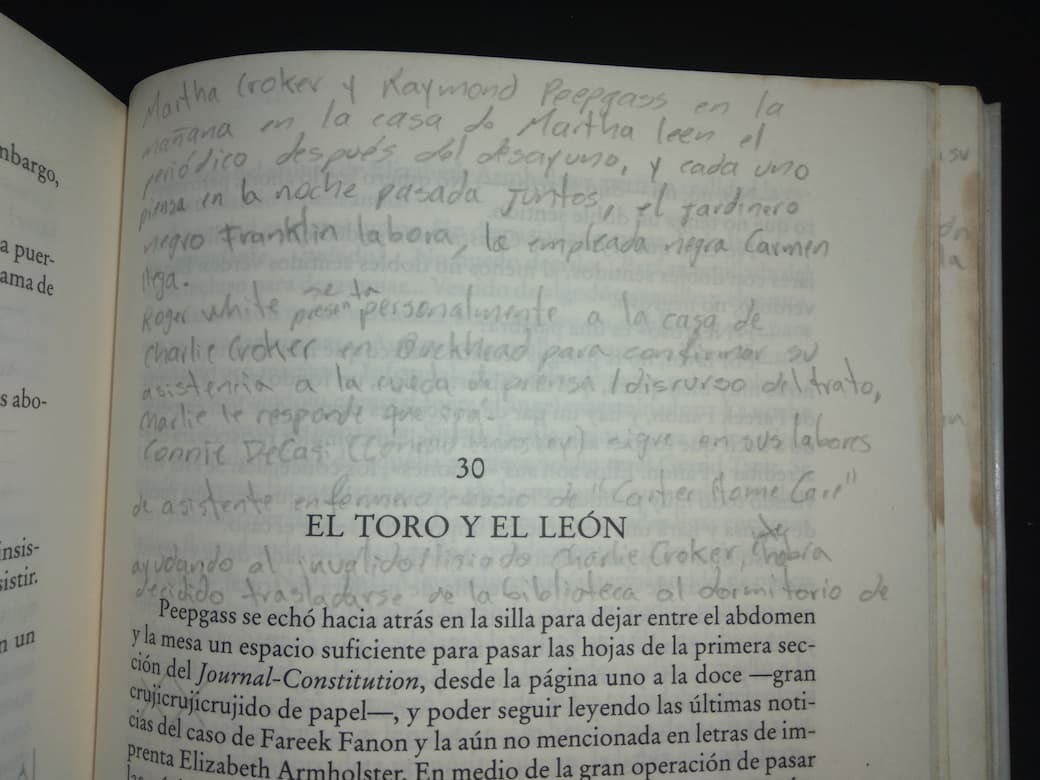 mbargo,
a puer-
ama de
s abo-
insis-
sistir.
n un
Martha Croker y Raymond Peepgass en la
mañana en la casa de Martha leen el
periódico después del desayuno, y cada uno
piensa en la noche pasada juntos, el jardinero
negro Franklin labora, la empleada negra Carmen
llega.
Roger White se presenta personalmente a la casa de
Charlie Croker en Buckhead para confirmar su
asistencia a la rueda de prensa / discurso del trato,
Charlie le responde que
Connie DeCasi (Conrad Hensley) sigue en sus labores
30
de asistente enfermero de "Carter Home Care"
EL TORO Y EL LEÓN
ayudando al Charlie Croker,
decidido trasladarse de la biblioteca al dormitorio de
Peepgass se echó hacia atrás en la silla para dejar entre el abdomen
y la mesa un espacio suficiente para pasar las hojas de la primera sec-
ción del Journal-Constitution, desde la página uno a la doce —gran
crujicrujicrujido de papel—, y poder seguir leyendo las últimas noti-
cias del caso de Fareek Fanon y la aún no mencionada en letras de im-
prenta Elizabeth Armholster. En medio de la gran operación de pasar
su
la